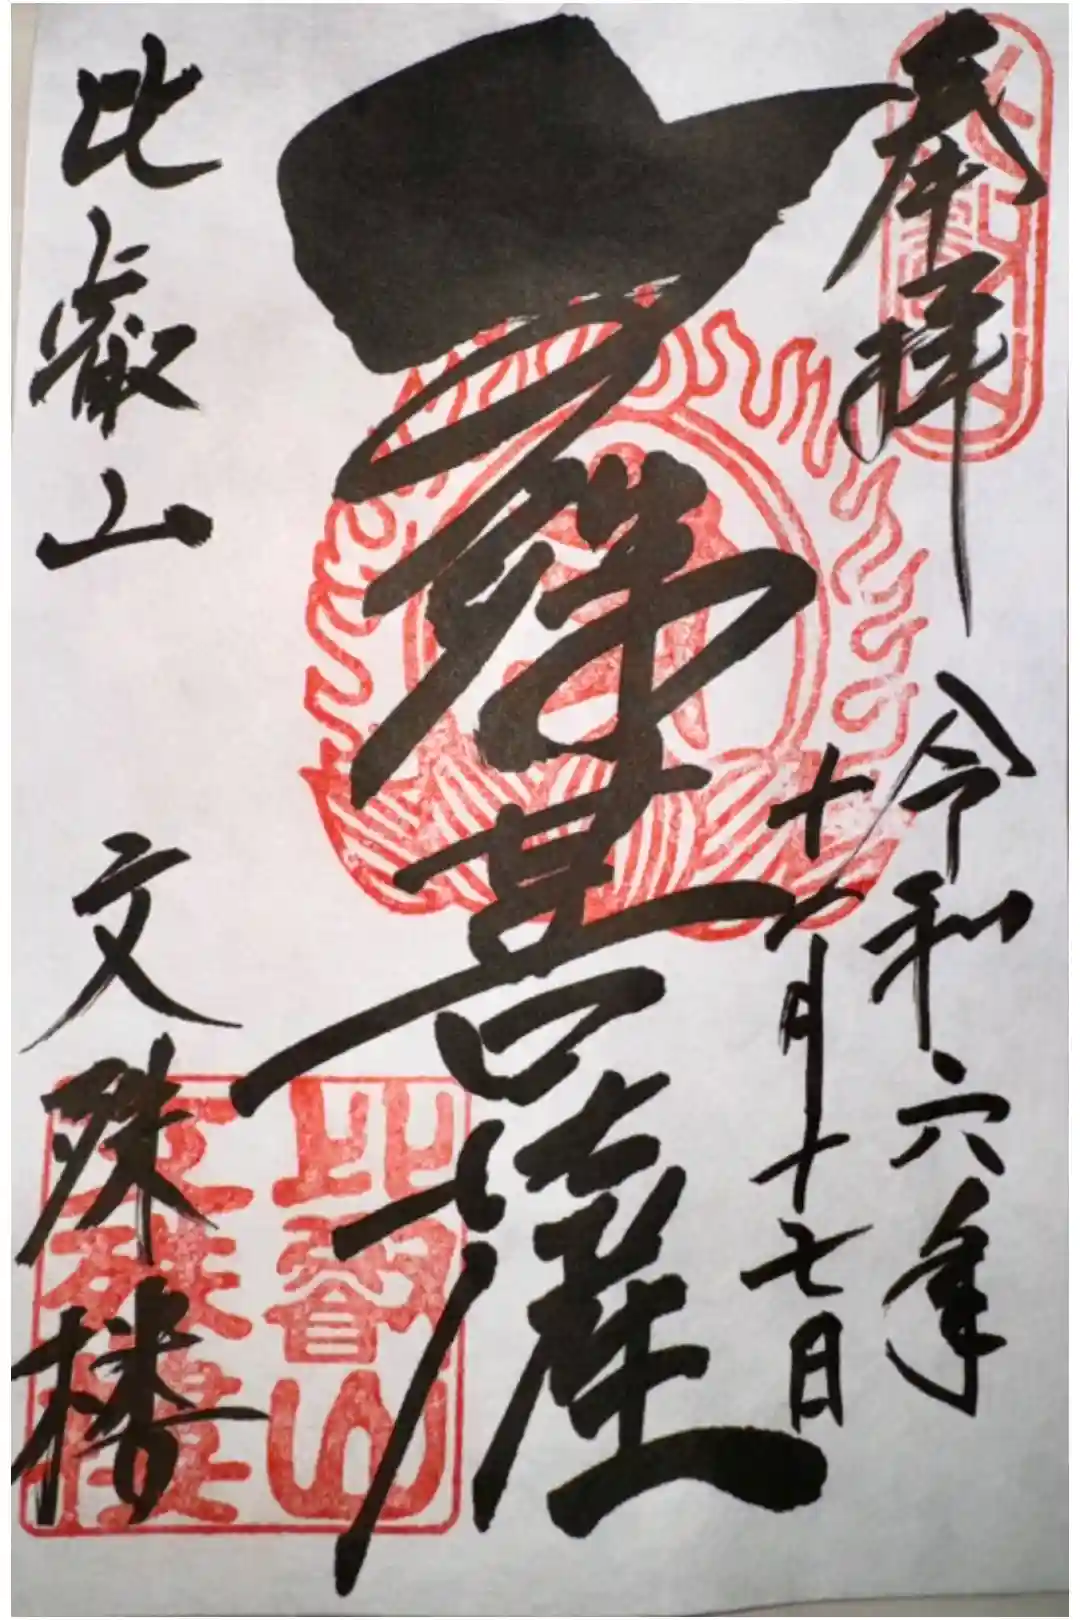 奉拝
令和六年
十七日
文殊菩薩
比叡山 文殊楼
比叡山
文殊樓